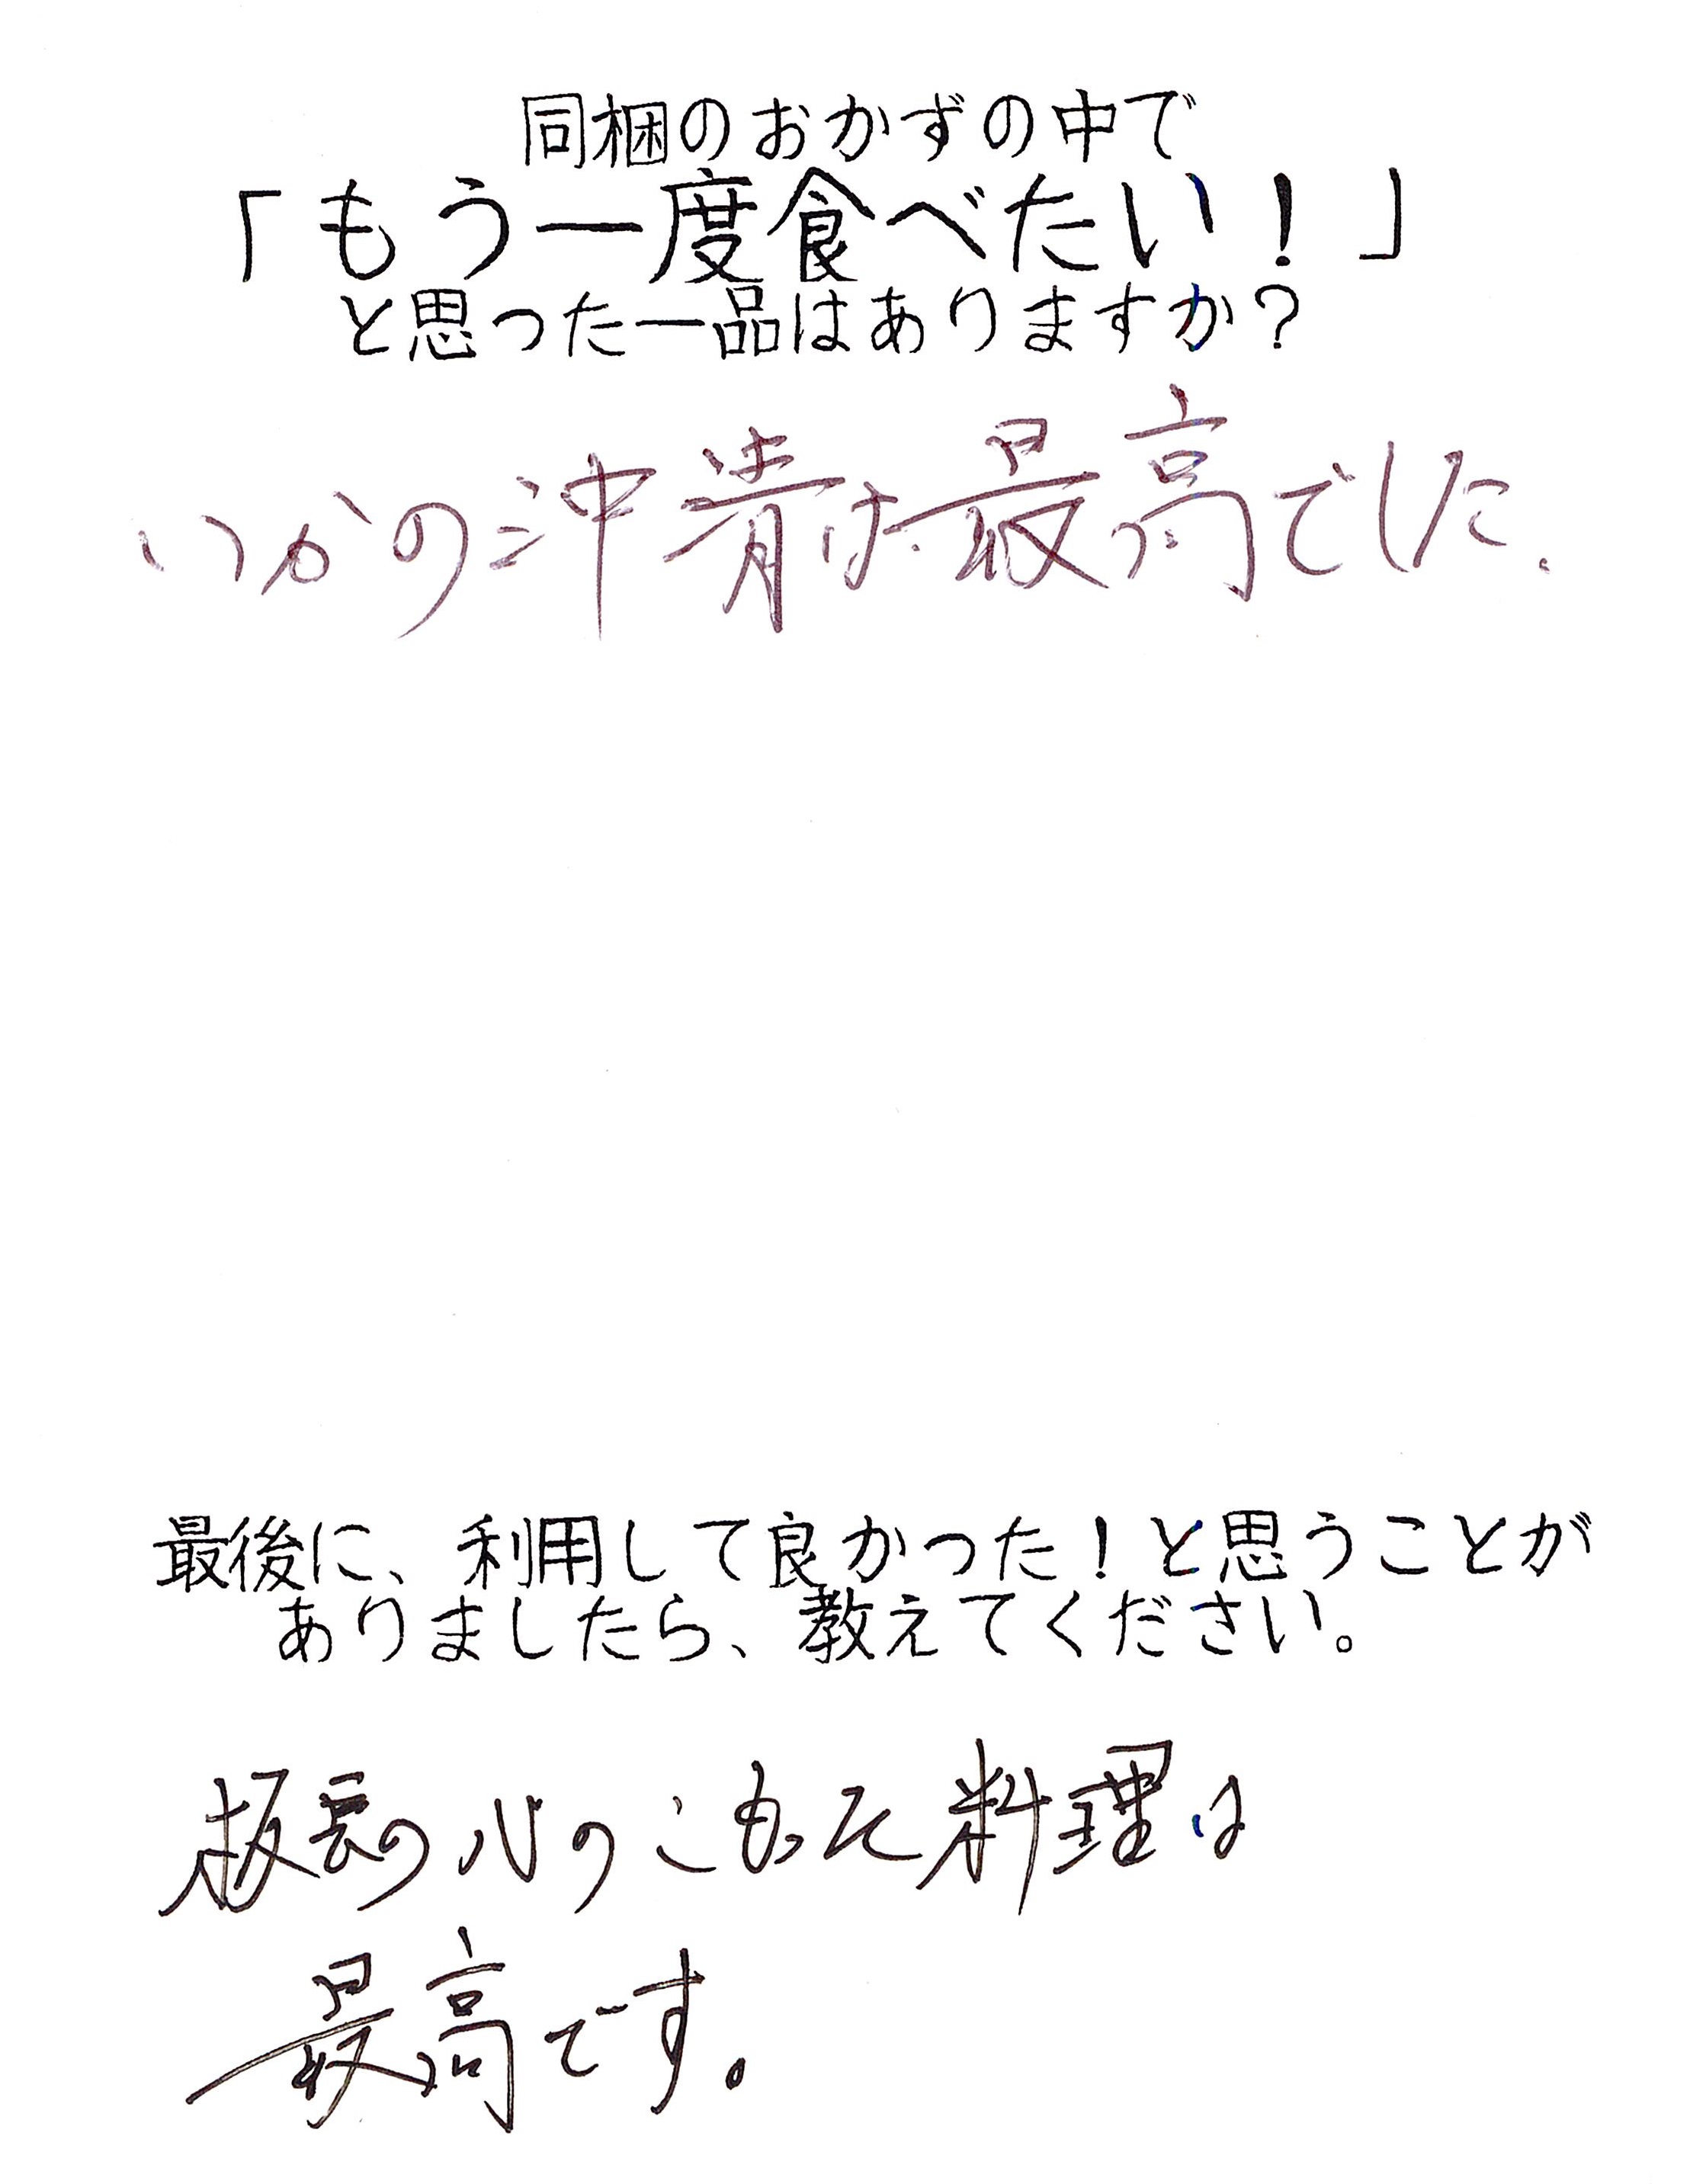 同梱のおかずの中で
「もう一度食べたい！」
と思った一品はありますか？
いかの沖漬は最高でした.
最後に、利用して良かった！と思うことが
ありましたら、教えてください。
板長の心のこもった料理は
最高です。